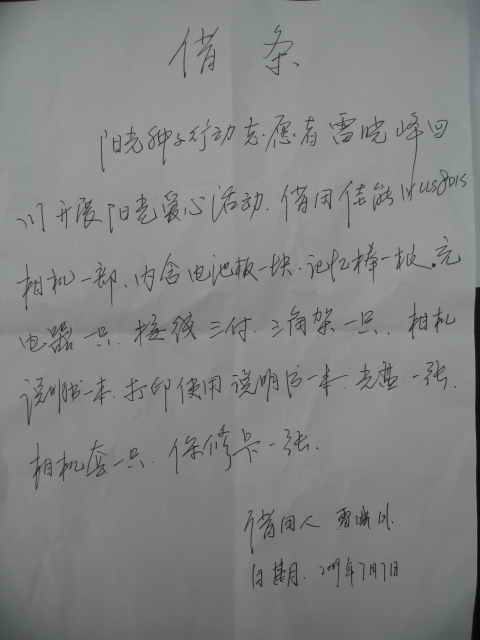 借 条
阳光种子行动志愿者雷晓峰四
川开展阳光爱心活动.借用佳能IXUS80IS
相机一部、内含电池板一块.记忆棒一枚.充
电器一只.接线三付.三角架一只.相机
说明书一本.打印使用说明书一本.光盘一张.
相机套一只.保修卡一张.
借用人 雷
日期.2009年7月7日